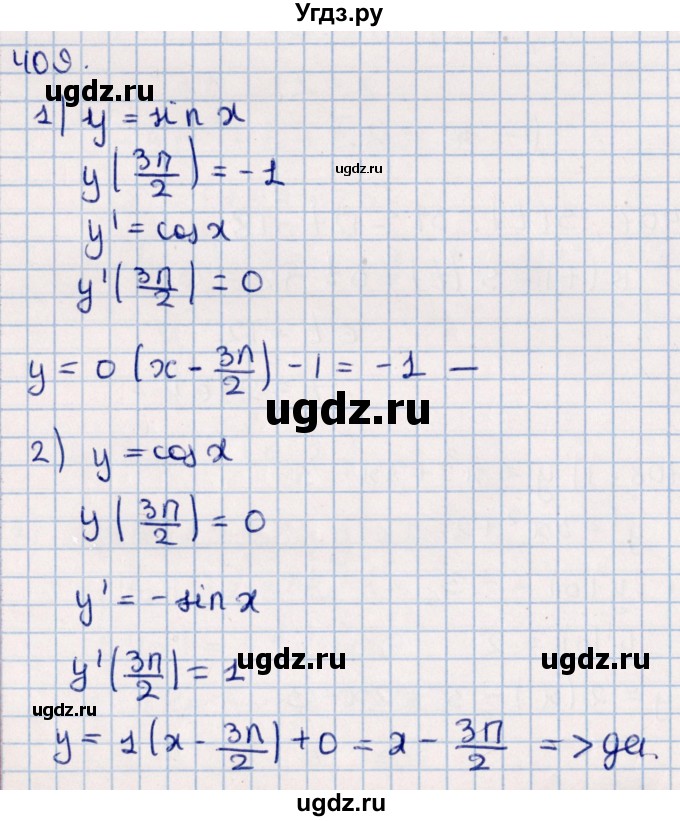 Угдз.ру
409.
ugdz.ru
1) y = sin x
y(3π/2) = -1
ugdz.ru
y' = cos x
y'(3π/2) = 0
y = 0 (x - 3π/2) - 1 = -1 —
ugdz.ru
2) y = cos x
y(3π/2) = 0
y' = - sin x
y'(3π/2) = 1
ugdz.ru
ugdz.ru
ugdz.ru
y = 1(x - 3π/2) + 0 = x - 3π/2 => да.
ugdz.ru